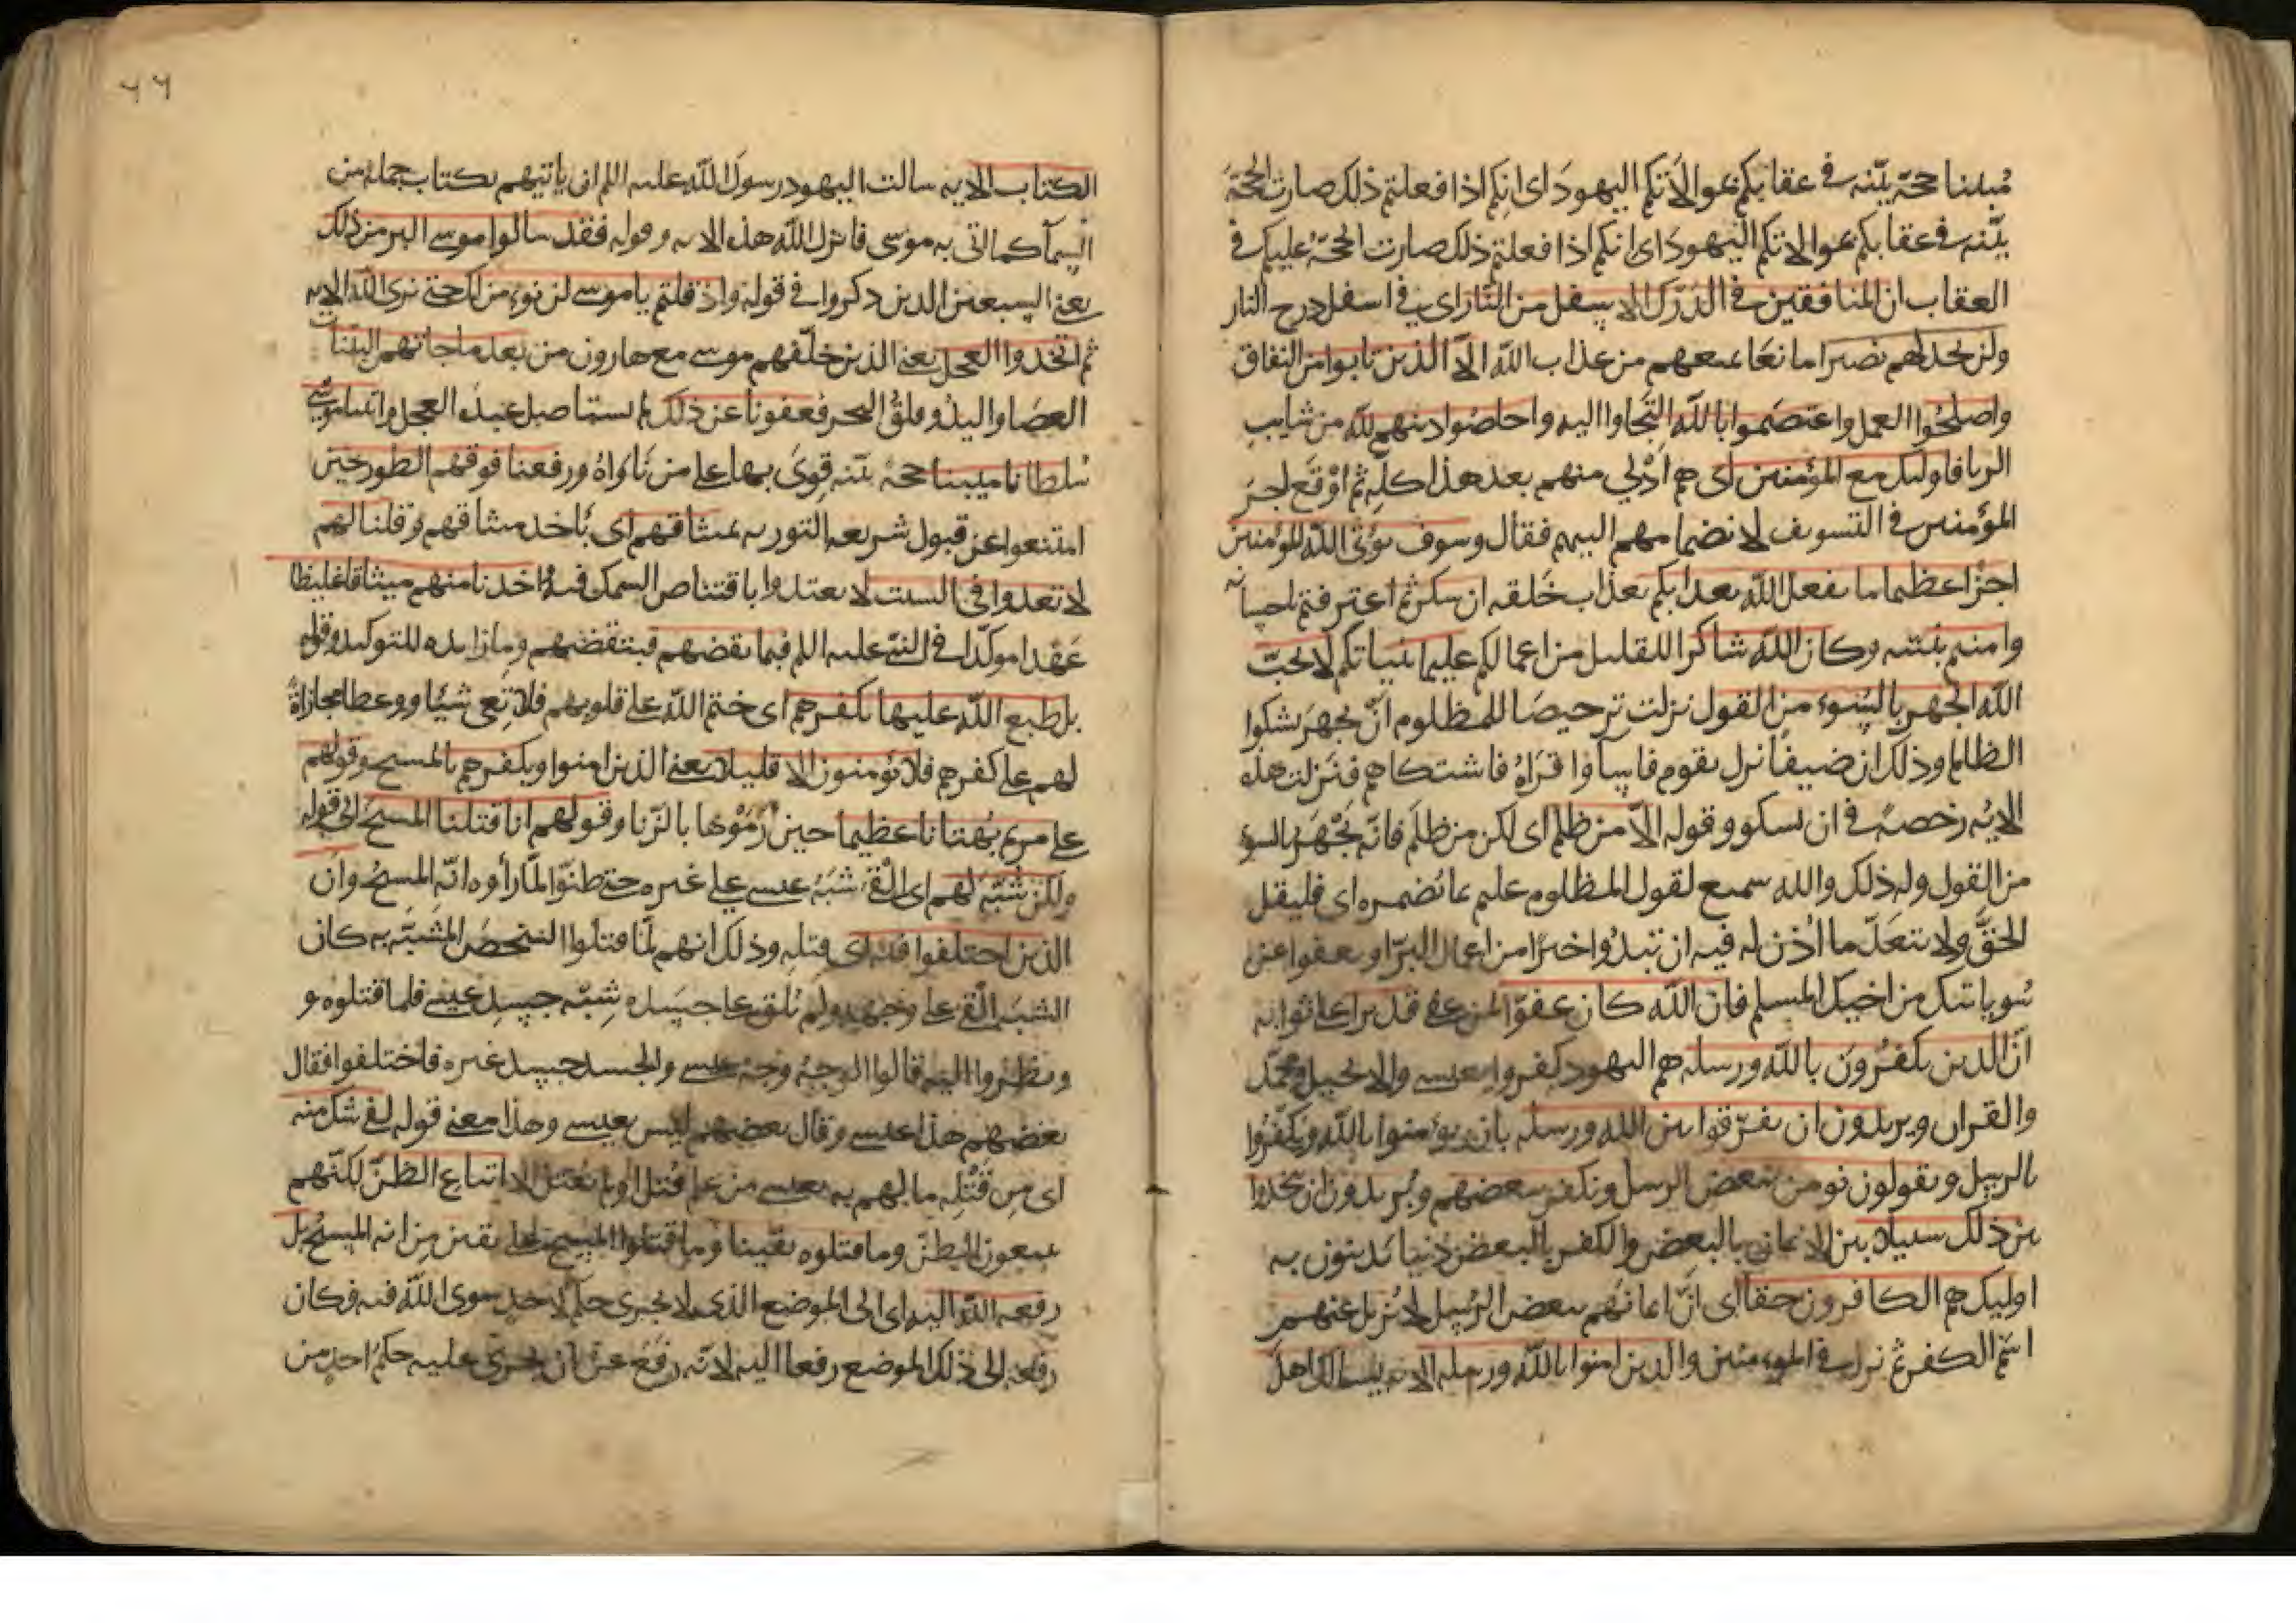 مُبيناً حجّة بيّنه في عقابكم بموالاتكم اليهودَ اى انكم اذا فعلتم ذلك صارت الحجّة
بيّنه في عقابكم بموالاتكم اليهودَ اى انكم اذا فعلتم ذلك صارت الحجّة عليكم في
العقاب ان المنافقين في الدّرك الاسفل من النّار اى في اسفل درج النار
ولن تجد لهم نصيرا مانعًا يمنعهم من عذاب الله الّا الذين تابوا من النفاق
واصلحُوا العمل واعتصمُوا بالله التجاوا اليه واخلصُوا دينهم لله من شايب
الريا فاوليك مع المؤمنين اى هم ادْنى منهم بعد هذا كلّه ثم اوْقَع اجر
المؤمنين في التسويف لانضمامهم اليهم فقال وسوف يؤتى الله المؤمنين
اجرًا عظيما ما يفعل الله بعذابكم بعذاب خَلقه ان شكرتم اعترفتم باحسانه
وامنتم بنبيّه وكان الله شاكرا للقليل من اعمالكم عليما بنياتكم لا يحبّ
الله الجهر بالسُوء من القول نزلت ترخيصًا للمظلوم انْ يجهرَ بشكوا
الظالم وذلك ان ضيفًا نزل بقوم فاساوا قراهُ فاشتكاهم فنزلت هذه
الايه رخصةً في ان يشكو وقوله الّا من ظلم اى لكن من ظلم فانّه يَجْهَر بالسوء
من القول وله ذلك والله سميع لقول المظلوم عليم بما تُضمره اى فليقل
الحقَّ ولا يتعَدّ ما اُذن له فيه ان تبدُوا خيرًا من اعمال البرّ او تعفوا عن
سُو ياتيك من اخيك المسلم فان الله كان عفوّا لمن عفى قديرا على ثوابه
انّ الذين يكفُرونَ بالله ورسله هم اليهود كفروا بعيسى والانجيل ومحمّد
والقران ويريدون ان يفرّقوا بين الله ورسله بان يؤمنوا بالله ويكفُروا
بالرسل ويقولون نومن ببعض الرسل ونكفر ببعضهم ويُريدون ان يتّخذوا
بين ذلك سبيلا بين الايمان بالبعض والكفر بالبعض دنيا يَدينون به
اوليك هم الكافرون حقا اى انّ ايمانهم ببعض الرسل لا يُزيل عنهم
اسم الكفر ثم نزل في المومنين والذين امنوا بالله ورسله الايه يسالك اهل
٦٦
الكتاب الايه سالت اليهود رسولَ الله عليه السلم ان ياتيهم بكتاب جملة من
السمآ كما اتى به موسى فانزل الله هذه الايه وقوله فقد سالوا موسى اكبر من ذلك
يعنى السبعين الذين ذكروا في قوله واذ قلتم ياموسى لن نومن لك حتى نرى الله الايه
ثم اتخذوا العجل يعنى الذين خلّفهم موسى مع هارون من بعد ما جاتهم البيّنات
العصَا واليدُ وفلقُ البحر فعفونا عن ذلك لم نستاصل عبدة العجل واتينا موسى
سُلطانا مبينا حجة بيّنه قوىَ بها على من نَاوَاهُ ورفعنا فوقهم الطور حين
امتنعوا عن قبول شريعه التوريه بميثاقهم اى باخذ ميثاقهم وقلنا لهم
لا تعدوا في السبت لا يعتدوا باقتناص السمك فيه واخذنا منهم ميثاقا غليظا
عَهْدا موكّدا في النبى عليه السلم فبما نقضهم فبنقضهم وما زايده للتوكيد وقوله
بل طبع الله عليها بكفرهم اى ختم الله على قلوبهم فلا تَعى شيئا ووعظا مجازاةً
لهم على كفرهم فلا يُؤمنون الا قليلا يعنى الذين امنوا وبكفرهم بالمسيح وقولهم
على مريم بُهتانا عظيما حين رَمَوْها بالزنا وقولهم انا قتلنا المسيحَ الى قوله
ولكن شُبّهَ لهم اى اُلقىَ شَبَهُ عيسى على غيره حتى ظنّوا لمّا رأوه انّه المسيحُ وان
الذين اختلفوا فيه اى قتله وذلك انهم لمّا قتلُوا الشخصَ المشبّه به كان
الشبَه اُلقى على وجهه ولم يُلق على جسَده شِبْهُ جسد عيسى فلما قتلوه و
ونظروا اليه قالوا الوجهُ وجهُ عيسى والجسد جسد غيره فاختلفوا فقال
بعضهم هذا عيسى وقال بعضهم ليس بعيسى وهذا معنى قوله لفى شك منه
اى مِن قَتْلِه ما لهم به بعيسى من علم قُتل او لم يُقتل الا اتباع الظنّ لكنّهم
يتبعون الظنّ وما قتلوه يقينا وما قتلوا المسيح على يقين من انه المسيحُ بل
رفعه الله اليه اى الى الموضع الذى لا يجرى حكم لاحدٍ سوى الله فيه فكان
رفعُه الى ذلك الموضع رفعا اليه لانّه رفَعُ عن ان يجرى عليه حكمُ احدٍ من